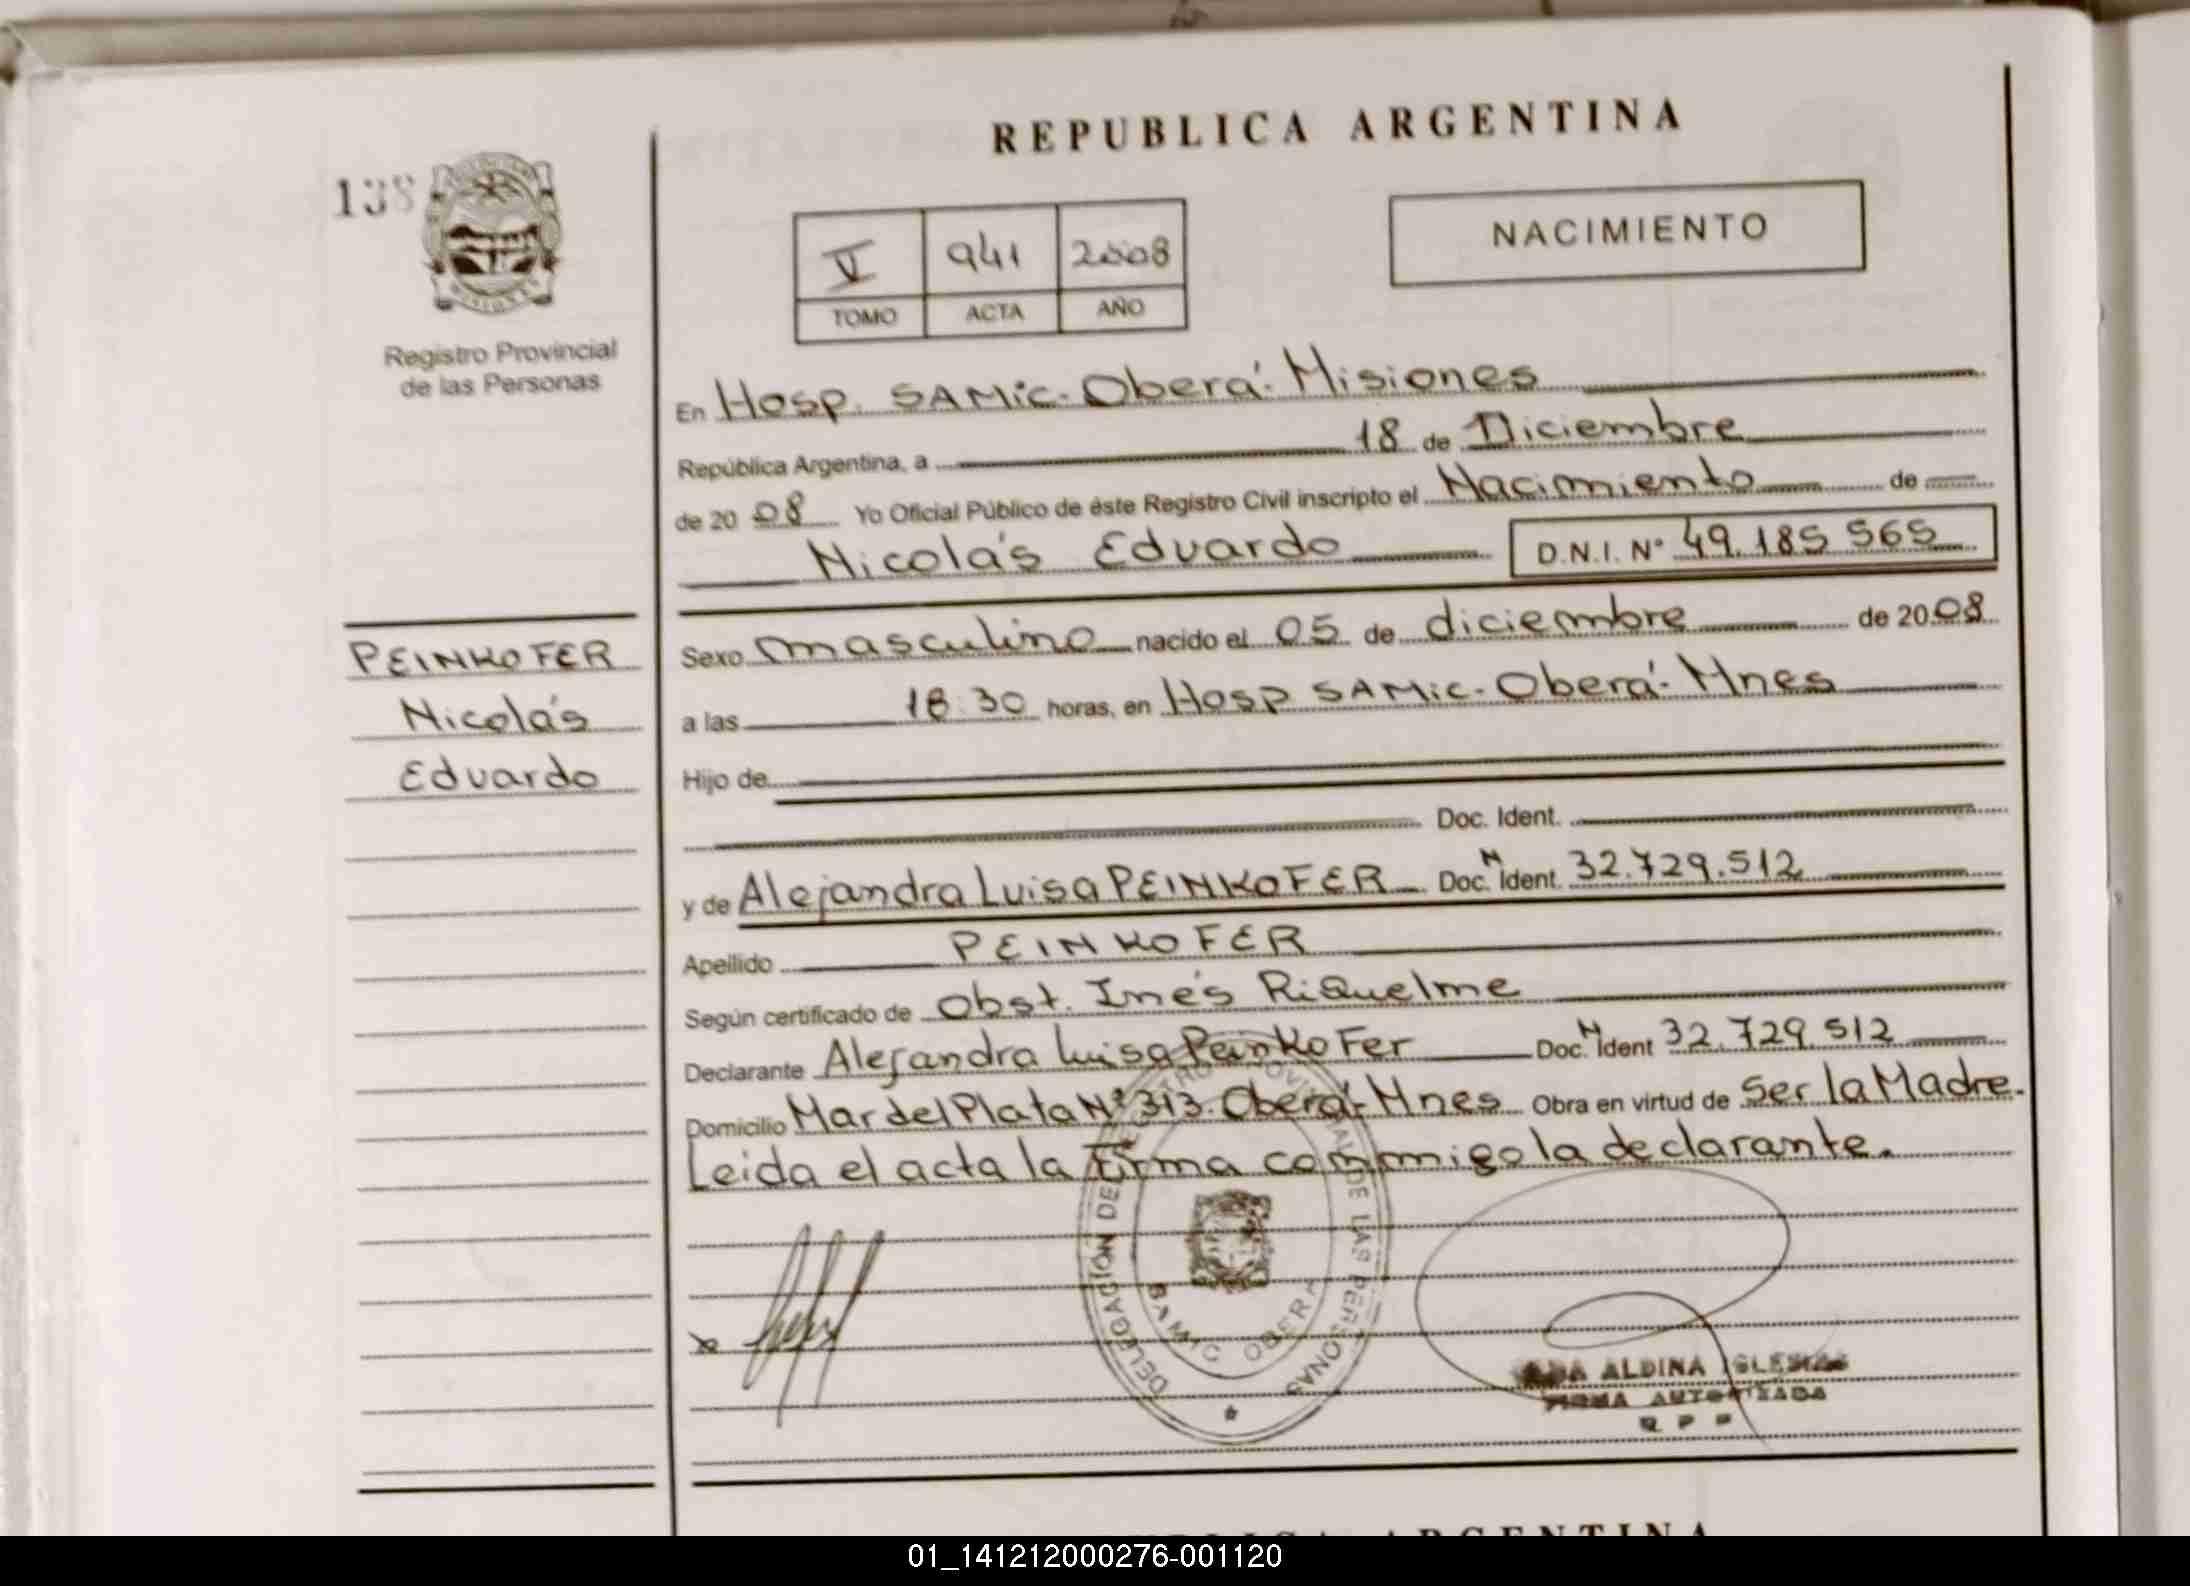 REPUBLICA ARGENTINA
138
V 941 2008
TOMO ACTA AÑO
NACIMIENTO
MISIONES
Registro Provincial
de las Personas
PEINKOFER
Nicolás
Eduardo
En Hosp. SAMic-Oberá-Misiones
República Argentina, a 18 de Diciembre
de 2008 Yo Oficial Público de éste Registro Civil inscripto el Nacimiento de
Nicolás Eduardo D.N.I. Nº 49.185 565
Sexo masculino nacido el 05 de diciembre de 2008
a las 18:30 horas, en Hosp SAMic-Oberá-Mnes
Hijo de
Doc. Ident.
y de Alejandra Luisa PEINKOFER Doc. N Ident. 32.729.512
Apellido PEINKOFER
Según certificado de Obst. Inés Riquelme
Declarante Alejandra Luisa Peinkofer Doc. N Ident 32.729.512
Domicilio Mar del Plata Nº 313. Oberá-Mnes Obra en virtud de Ser la Madre.
Leida el acta la firma conmigo la declarante.
DELEGACIÓN DEL REGISTRO PROVINCIAL DE LAS PERSONAS
SAMIC OBERA
ALDINA IGLESIAS
FIRMA AUTORIZADA
R P P
REPUBLICA ARGENTINA
01_141212000276-001120